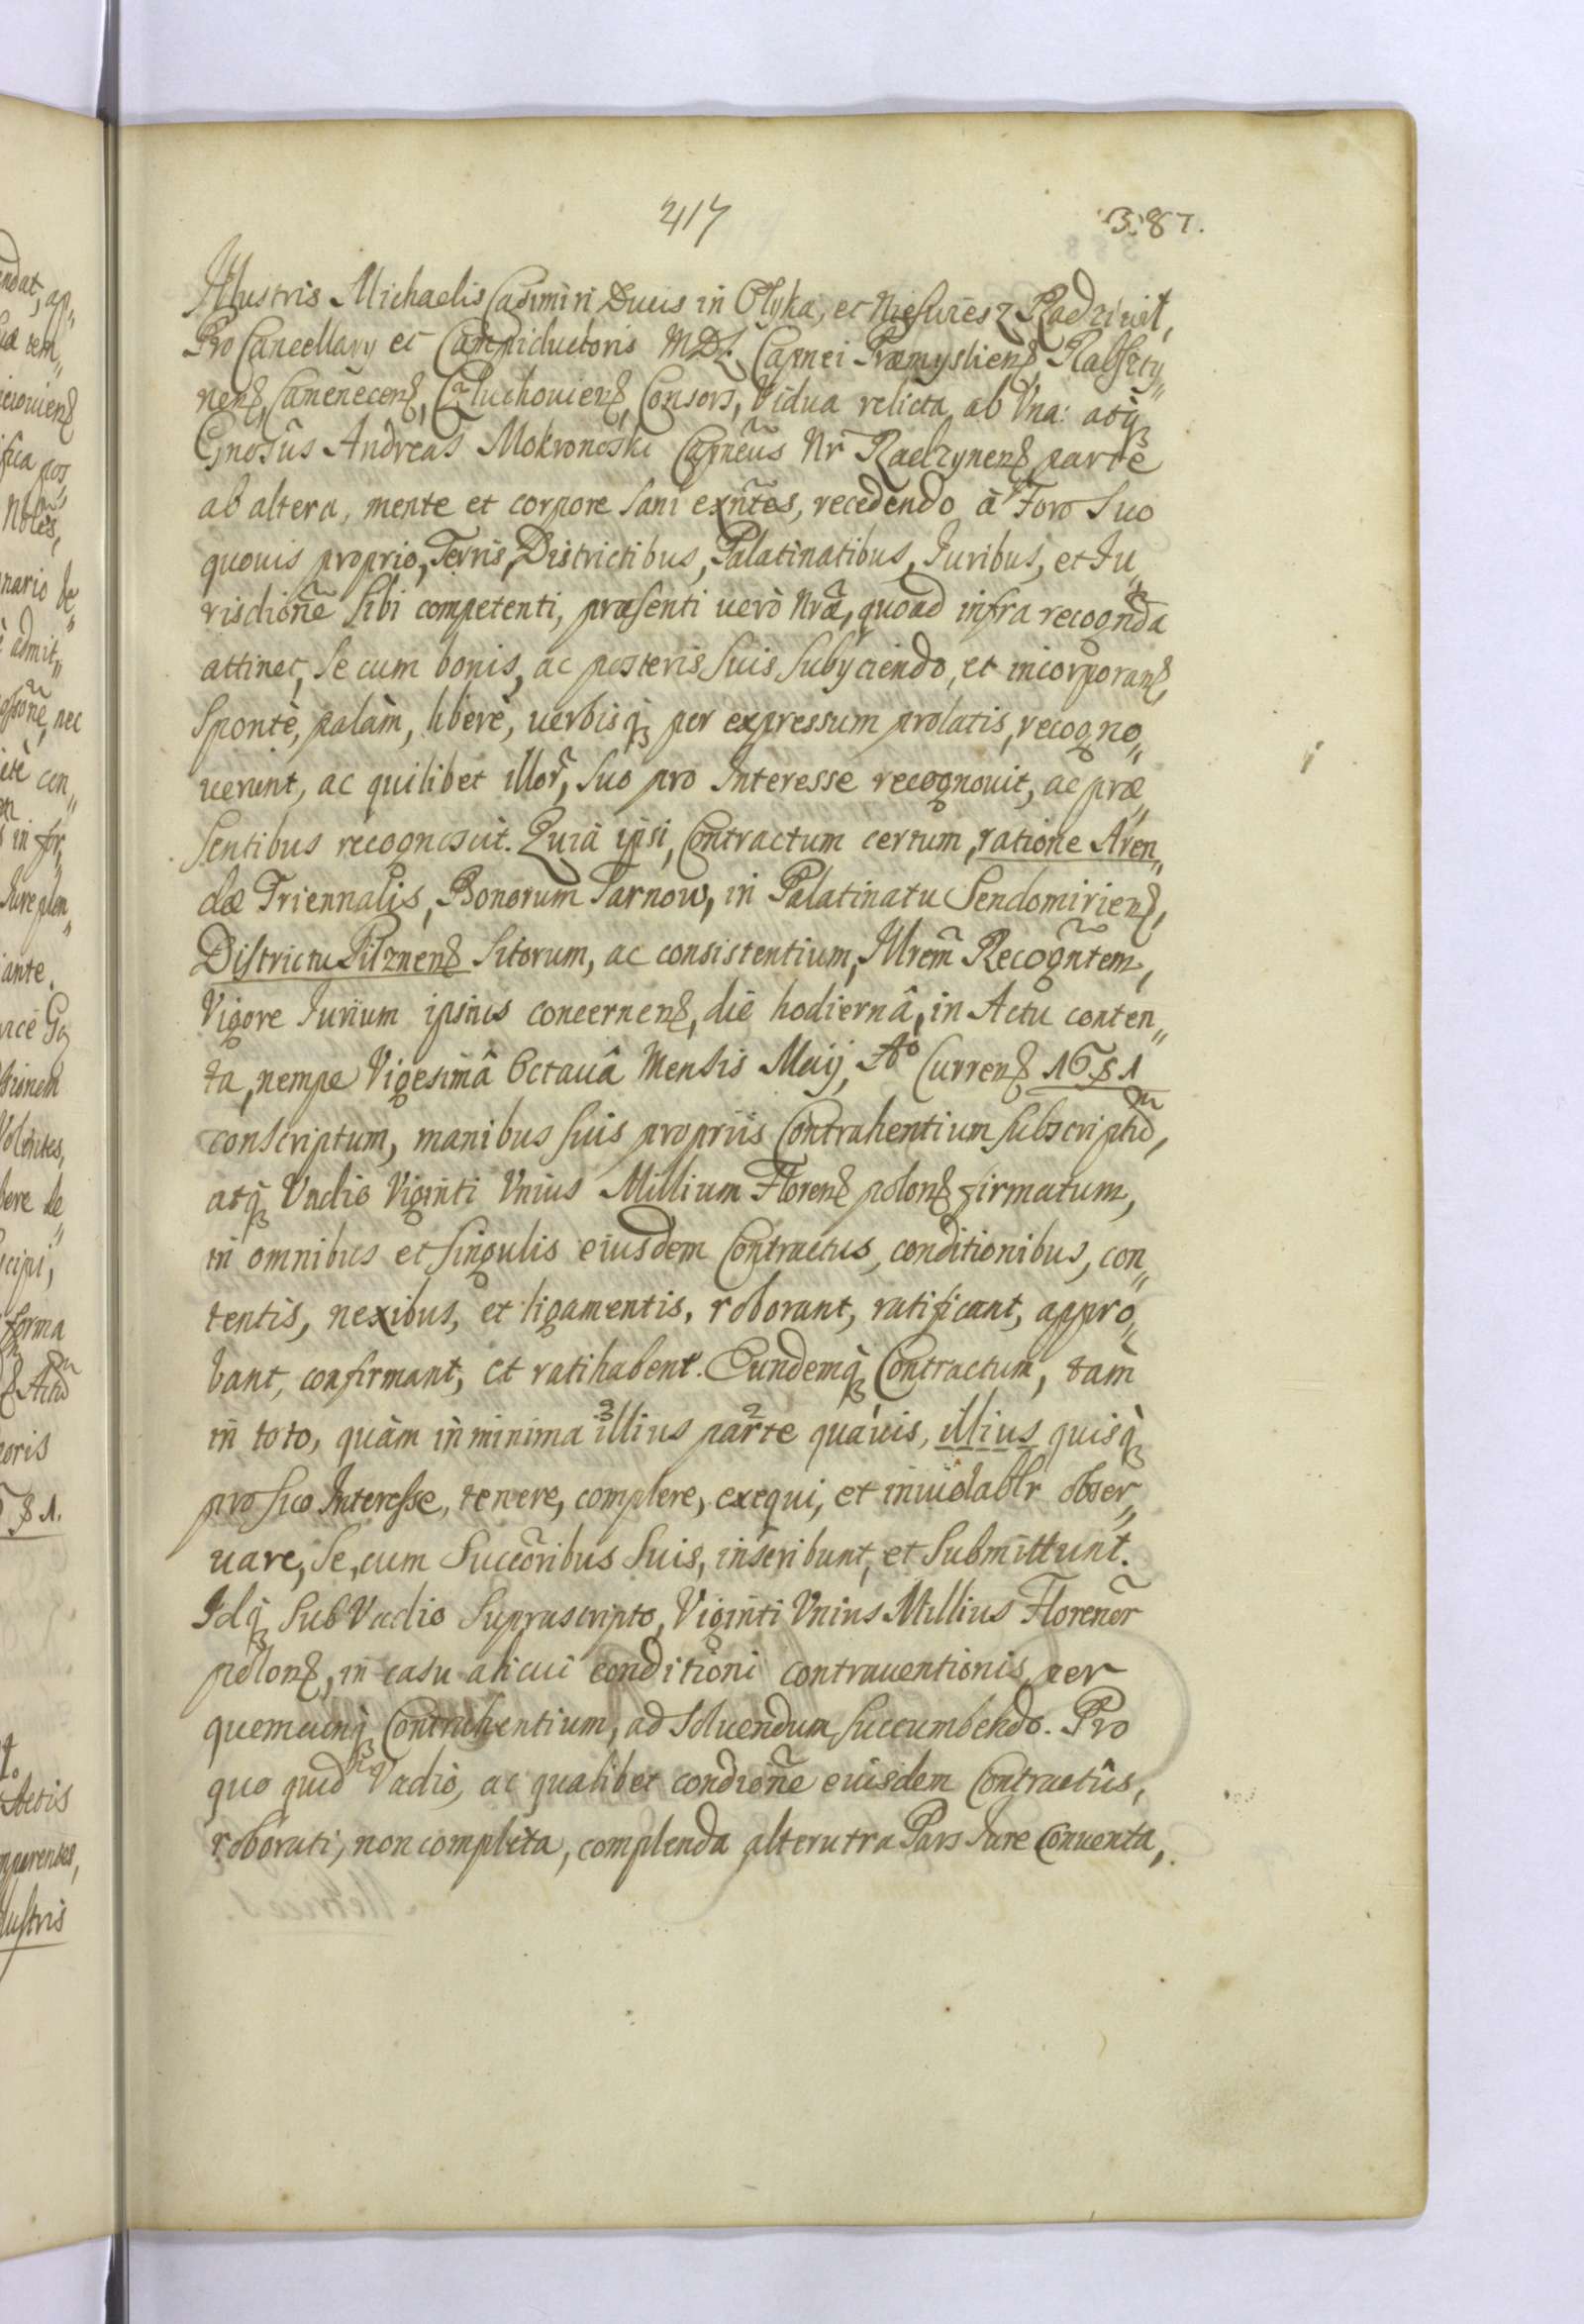 417 387.
Illustris Michaelis Casimiri Ducis in Olyka, et Nieswiesz Radziwił,
Pro Cancellarij et Campiductoris MDL. Capnei Præmysliens, Rabszty„
nens, Camenecens, Człuchouiens, Consors, Vidua relicta, ab Vna: atq3
Gnosus Andreas Mokronoski Capneus Nr Radzynens, parte
ab altera, mente et corpore sani exn̄tes, recedendo à Foro suo
quouis proprio, Terris, Districtibus, Palatinatibus, Iuribus, et Iu„
risdiōne sibi competenti, præsenti uerò Nrã, quoad infra recogn̄da
attinet, se cum bonis, ac posteris suis subyciendo, et incorporans,
Spontè, palàm, liberè, uerbisq3 per expressum prolatis, recogno„
uerunt, ac quilibet illor, suo pro Interesse recognouit, ac præ„
sentibus recognoscit. Quià ipsi, Contractum certum, ratione Aren„
dæ Triennalis, Bonorum Tarnow, in Palatinatu Sendomiriens,
Districtu Pilznens sitorum, ac consistentium, Illrem Recogn̄tem,
Vigore Iurium ipsius concernens, die hodiernâ, in Actu conten„
ta, nempe Vigesimâ Octauâ Mensis Maij, Aº Currens 1681
conscriptum, manibus suis propriis Contrahentium subscriptũ,
atq3 Vadio Viginti Vnius Millium Florens polons firmatum,
in omnibus et singulis eiusdem Contractus, conditionibus, con„
tentis, nexibus, et ligamentis, roborant, ratificant, appro„
bant, confirmant, et ratihabent. Eundemq3 Contractum, tam
in toto, quàm in minima 3illius par2te quáuis, illius quisq3
pro suo Interesse, tenere, complere, exequi, et inuiolablr obser„
uare, se, cum Succoribus suis, inscribunt, et submittunt.
Idq3 sub Vadio suprascripto, Viginti Vnius Millius Florenor
polons, in casu alicui conditioni contrauentionis, per
quemcunq3 Contrahentium, ad soluendum succumbendo. Pro
quo quid Vadio, ac qualibet condiōne eiusdem Contractûs,
roborati, non completa, complenda alterutra Pars Iure Conuenta,